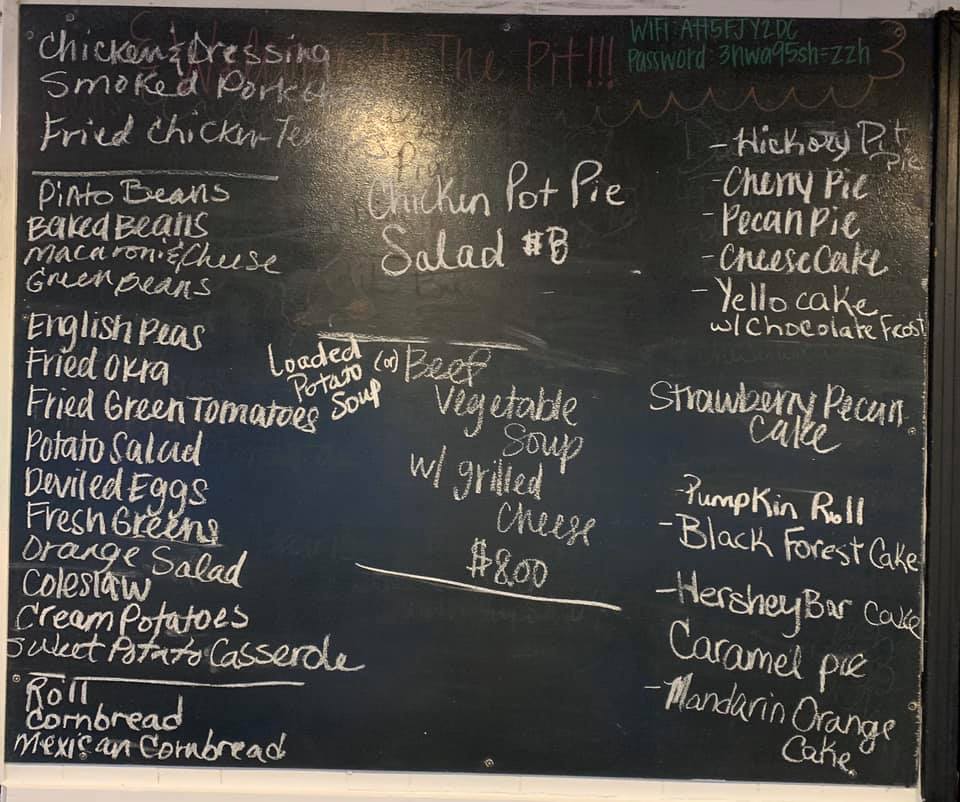 Welcome To The Pit!!!
WIFI: ATt5FJY2DC
Password 3nwa95sh=zzh
Chicken & Dressing
Smoked Pork
Fried Chicken
Pinto Beans
Baked Beans
Macaroni & Cheese
Green Beans
English Peas
Fried Okra
Fried Green Tomatoes
Potato Salad
Deviled Eggs
Fresh Greens
Orange Salad
Coleslaw
Cream Potatoes
Sweet Potato Casserole
Roll
Cornbread
Mexican Cornbread
Chicken Pot Pie
Salad $8
Loaded
Potato
Soup
(or) Beef
Vegetable
Soup
w/ grilled
Cheese
$8.00
- Hickory Pit
Pie
- Cherry Pie
- Pecan Pie
- CheeseCake
- Yello cake
w/ Chocolate Frost
Strawberry Pecan
Cake
- Pumpkin Roll
- Black Forest Cake
- Hershey Bar Cake
Caramel pie
- Mandarin Orange
Cake